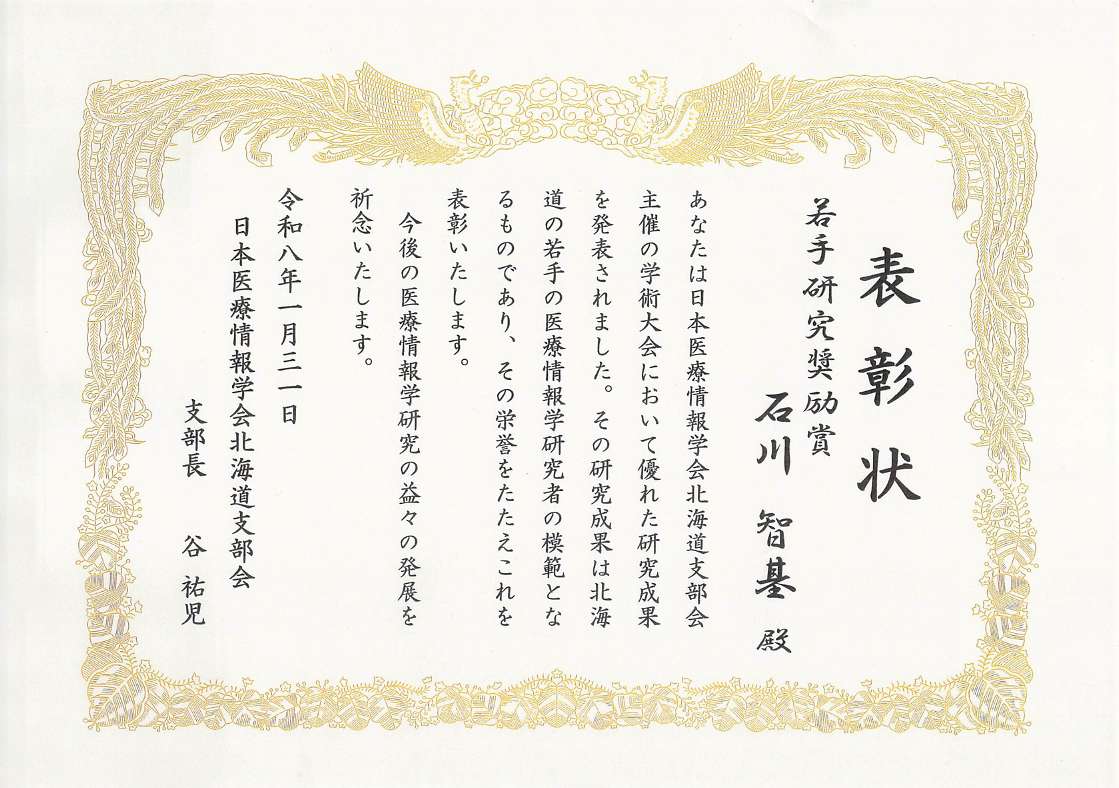 表彰状
若手研究奨励賞
石川 智基 殿
あなたは日本医療情報学会北海道支部会
主催の学術大会において優れた研究成果
を発表されました。その研究成果は北海
道の若手の医療情報学研究者の模範とな
るものであり、その栄誉をたたえこれを
表彰いたします。
今後の医療情報学研究の益々の発展を
祈念いたします。
令和八年一月三一日
日本医療情報学会北海道支部会
支部長 谷 祐児